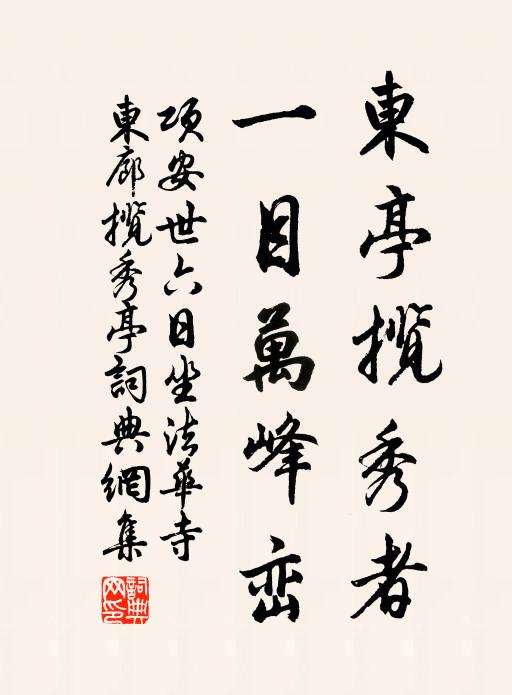 東亭攬秀者
一目萬峰巒
項安世六日坐法華寺
東廊攬秀亭詞典網集
詞典網印